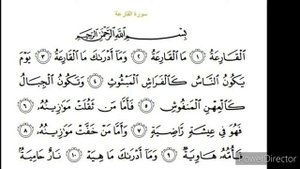 سورة القارعة
بِسْمِ اللَّهِ الرَّحْمَٰنِ الرَّحِيمِ
الْقَارِعَةُ ١ مَا الْقَارِعَةُ ٢ وَمَا أَدْرَىٰكَ مَا الْقَارِعَةُ ٣ يَوْمَ
يَكُونُ النَّاسُ كَالْفَرَاشِ الْمَبْثُوثِ ٤ وَتَكُونُ الْجِبَالُ
كَالْعِهْنِ الْمَنْفُوشِ ٥ فَأَمَّا مَنْ ثَقُلَتْ مَوَٰزِينُهُ ٦
فَهُوَ فِي عِيشَةٍ رَاضِيَةٍ ٧ وَأَمَّا مَنْ خَفَّتْ مَوَٰزِينُهُ ٨
فَأُمُّهُ هَاوِيَةٌ ٩ وَمَا أَدْرَىٰكَ مَا هِيَهْ ١٠ نَارٌ حَامِيَةٌ
PowerDirector